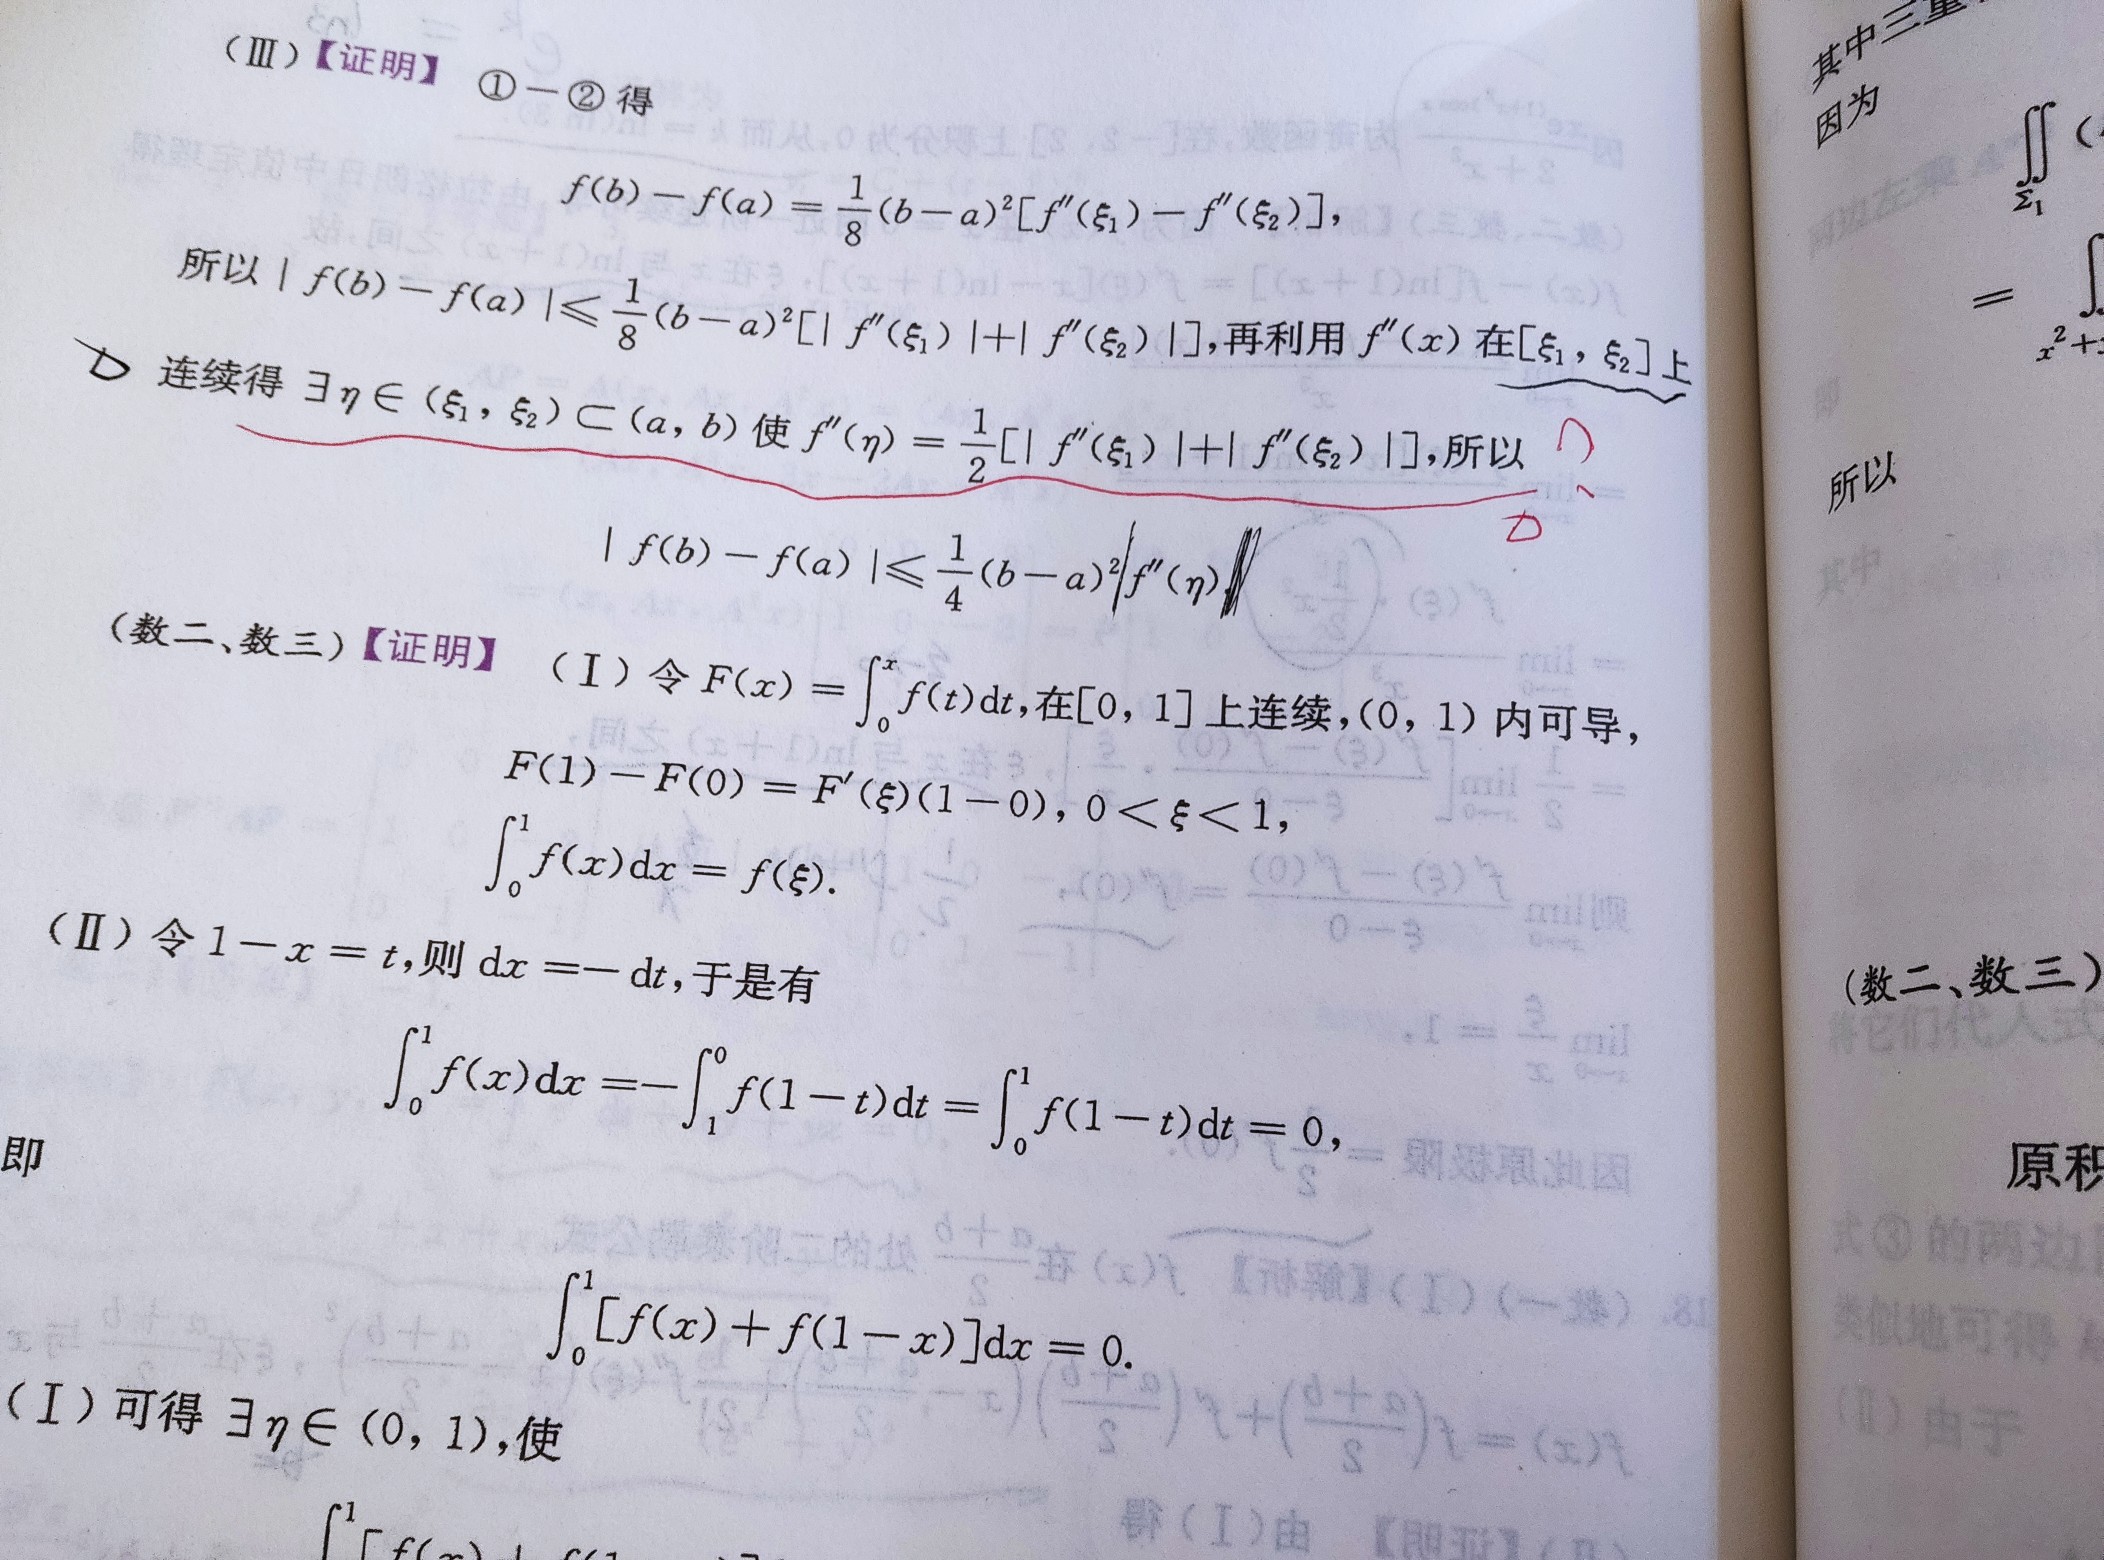 (Ⅲ)【证明】 ①－②得
f(b)－f(a)＝1/8(b－a)²[f″(ξ₁)－f″(ξ₂)],
所以|f(b)－f(a)|≤1/8(b－a)²[|f″(ξ₁)|＋|f″(ξ₂)|],再利用 f″(x) 在[ξ₁, ξ₂]上
连续得 ∃η∈(ξ₁, ξ₂)⊂(a, b) 使 f″(η)＝1/2[|f″(ξ₁)|＋|f″(ξ₂)|],所以
|f(b)－f(a)|≤1/4(b－a)²|f″(η)
(数二、数三)【证明】 (Ⅰ) 令 F(x)＝∫₀ˣf(t)dt,在[0, 1]上连续,(0, 1) 内可导,
F(1)－F(0)＝F′(ξ)(1－0), 0＜ξ＜1,
∫₀¹f(x)dx＝f(ξ).
(Ⅱ) 令 1－x＝t,则 dx＝－dt,于是有
∫₀¹f(x)dx＝－∫₁⁰f(1－t)dt＝∫₀¹f(1－t)dt＝0,
即
∫₀¹[f(x)＋f(1－x)]dx＝0.
(Ⅰ) 可得 ∃η∈(0, 1),使
其中三重
因为
∬Σ₁(
＝
x²＋
所以
(数二、数三)
原积